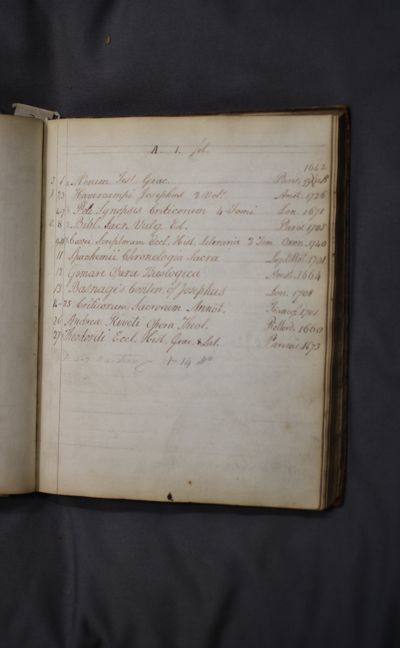 A. 1. fol.
1662
1 Novum Test. Græc. Paris
2,3 Havercampi Josephus 2 Vol. Amst. 1726
4-7 Poli Synopsis Criticorum 4 Tomi Lon. 1671
8 Bibl. Sacr. Vulg. Ed. Paris 1705
9,10 Cavei Scriptorum Eccl. Hist. Leteraria 2 Tom Oxon. 1740
11 Spanhemii Chronologia Sacra 1701
12 Gomari Opera Theologica Amst. 1664
13 Basnage's Contin. of Josephus Lon. 1708
14-25 Criticorum Sacrorum Annot. 1701
26 Andreæ Riveti Opera Theol. Rotterd. 1660
27 Theodoriti Eccl. Hist. Græc. & Lat. 1673
14